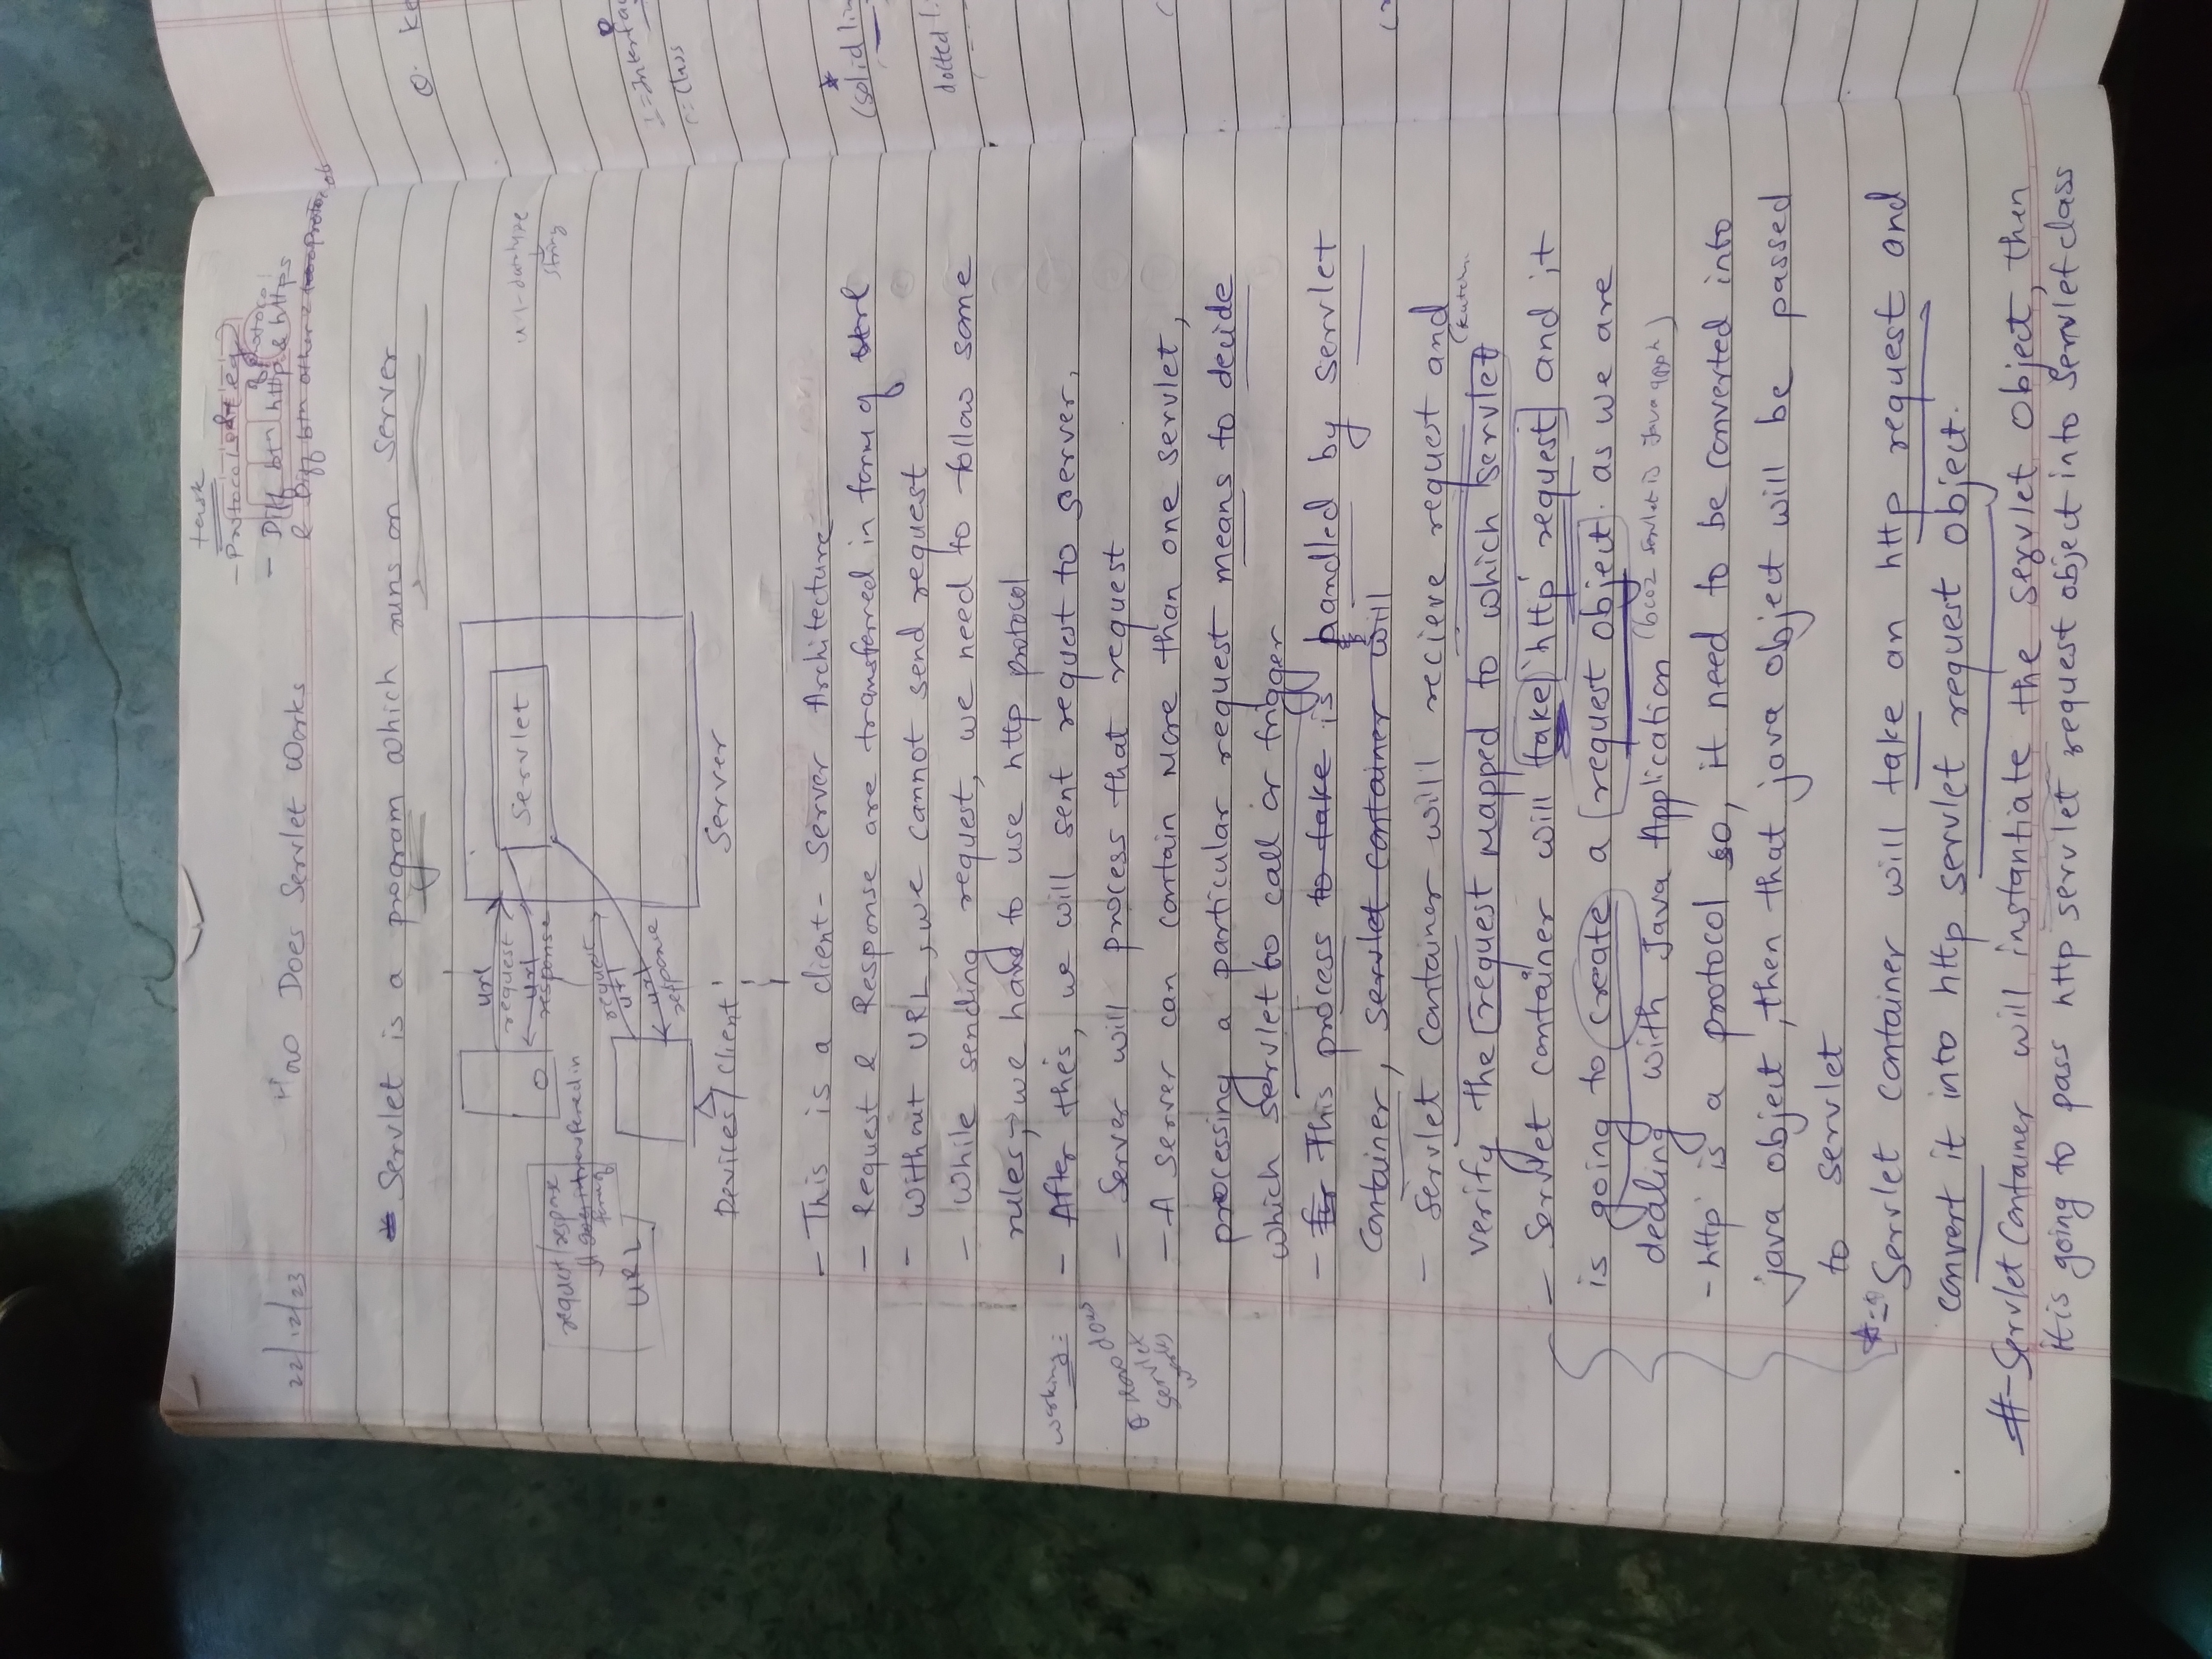 task
- Protocol & its eg
of protoco
- Diff btn http & https
& Diff btn other 2 protocols
22/12/23
How Does Servlet Works
* Servlet is a program which runs on Server
url
request
url
response
Servlet
url-datatype
string
request/response
transferred in
form of
URL
request
url
url
response
Devices/client
Server
- This is a client- Server Architecture
- Request & Response are transferred in form of url
- Without URL, we cannot send request
- While sending request, we need to follow some
rules, → we have to use http protocol
working:
- After this, we will sent request to server,
How does
servlet
works
- Server will process that request
- A server can contain more than one servlet,
processing a particular request means to decide
which servlet to call or trigger
- for This process to take is handled by servlet
container, servlet container will
- Servlet Container will recieve request and
verify the request mapped to which servlet
- Servlet container will take 'http' request and it
is going to create a request object. as we are
dealing with Java Application (bcoz servlet is Java appn)
- http is a protocol so, it need to be converted into
java object, then that java object will be passed
to servlet
*- Servlet container will take an http request and
convert it into http servlet request object.
#- Servlet Container will instantiate the servlet Object, then
it is going to pass http servlet request object into Servlet class
Q. Ke
I = Interfac
C = Class
*
(solid lin
dotted li